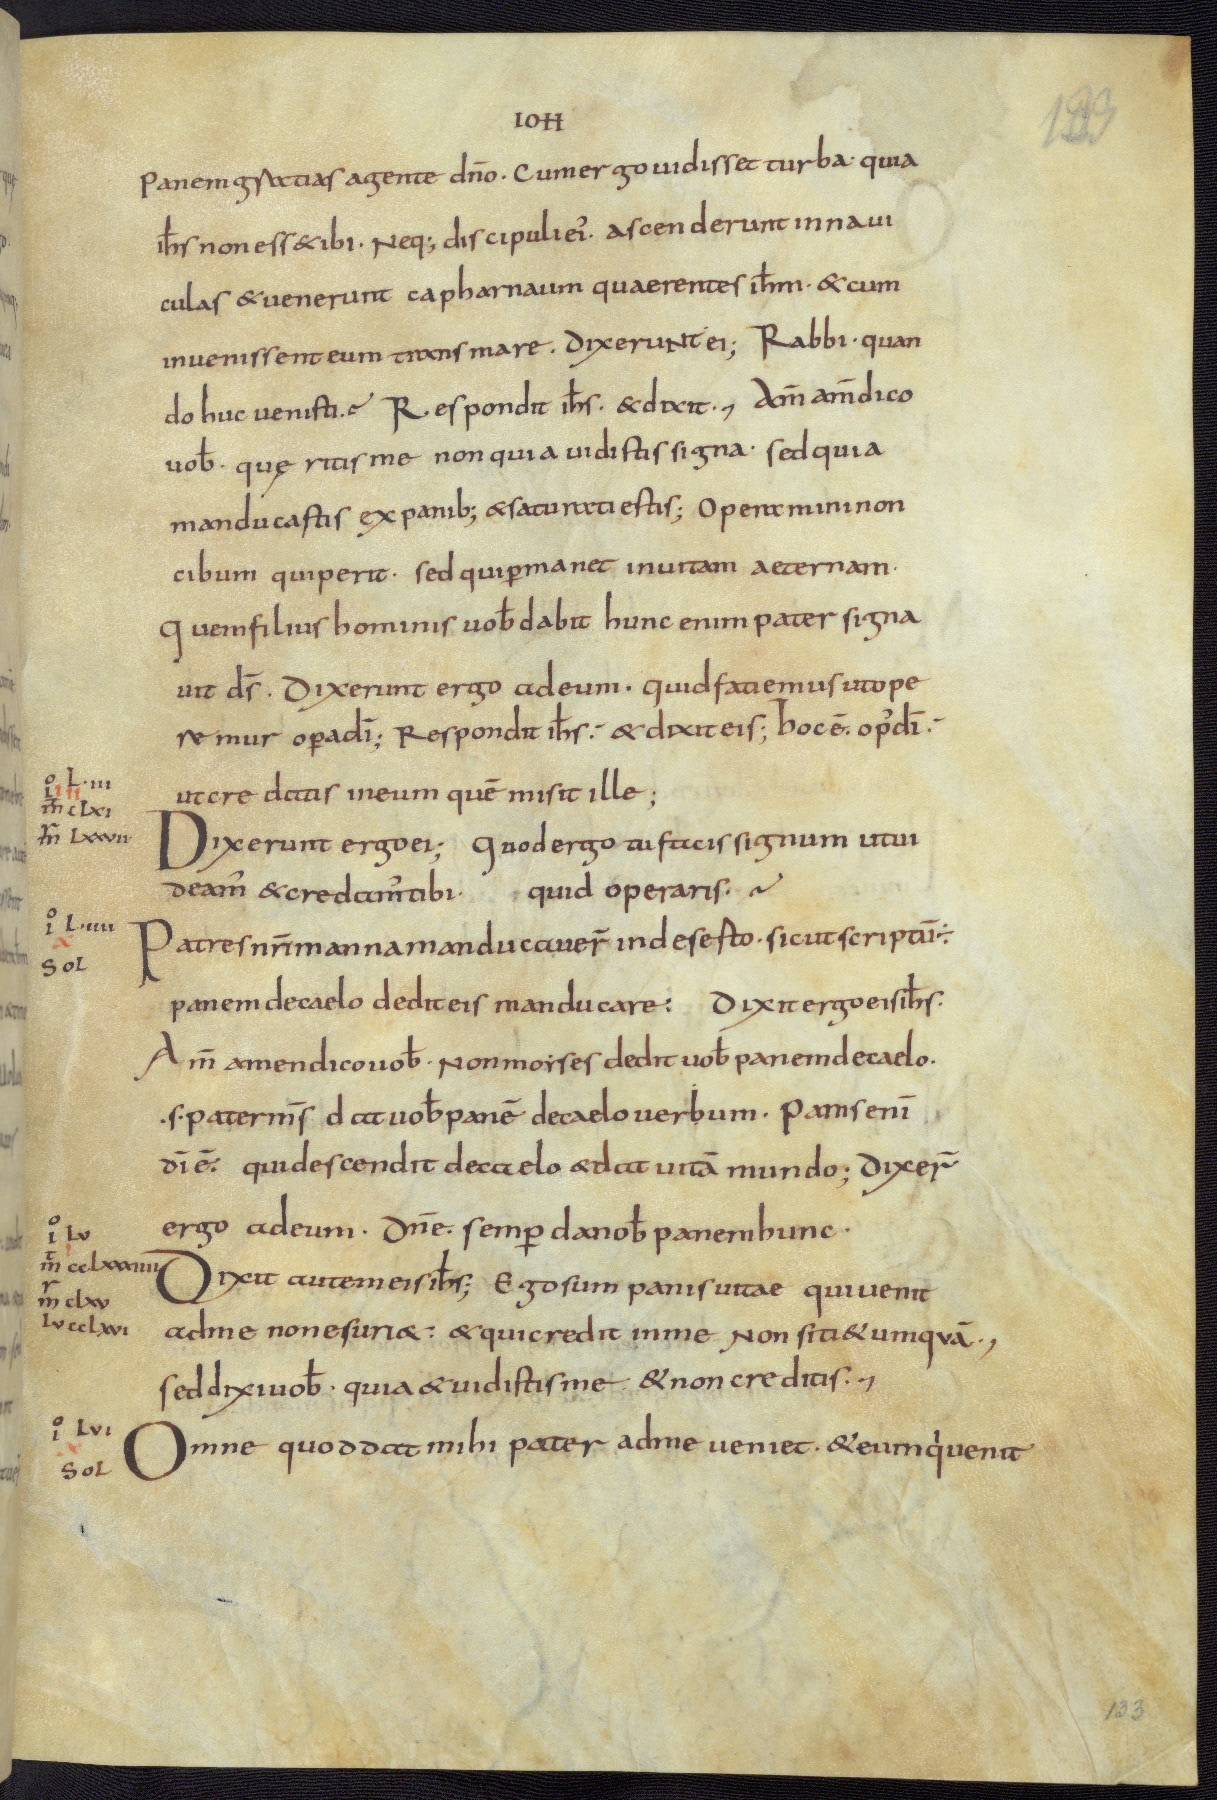 IOH
133
panem gratias agente dño. Cum ergo uidisset turba quia
ih̄s non ess& ibi. Neq; discipuli ei᾽. ascenderunt in naui
culas & uenerunt capharnaum quaerentes ih̄m. & cum
inuenissent eum trans mare. Dixerunt ei; Rabbi. quan
do huc uenisti. Respondit ih̄s. & dixit., Am̄ am̄ dico
uob̄. quę ritis me non quia uidistis signa. sed quia
manducastis ex panib; & saturati estis; Operamini non
cibum qui perit. sed qui ꝑmanet in uitam aeternam.
Quem filius hominis uob̄ dabit hunc enim pater signa
uit d̄s. Dixerunt ergo ad eum. quid faciemus ut ope
re mur oꝑa dī; Respondit ih̄s. & dixit eis; hoc ē. op᾽ dī.
ut credatis in eum quē misit ille;
Dixerunt ergo ei; Quod ergo tu facis signum ut ui
deam᾽ & credam᾽ tibi. quid operaris.
Patres nr̄i manna manducauer̄ in deserto. sicut scriptū:
panem de caelo dedit eis manducare: Dixit ergo eis ih̄s.
Am̄ amen dico uob̄. Non moises dedit uob̄ panem de caelo.
.s. pater m̄s dat uob̄ panē de caelo uerbum. Panis enī
dī ē. qui descendit de caelo & dat uitā mundo; Dixer̄
ergo ad eum. Dn̄e. semꝑ da nob̄ panem hunc.
Dixit autem eis ih̄s; Ego sum panis uitae qui uenit
ad me non esuri&: & qui credit in me Non siti& umquā.,
sed dixi uob̄. quia & uidistis me & non creditis.,
Omne quod dat mihi pater ad me ueniet. & eum qui uenit
i̊ L.iii
iii
m̄ cLxi
m̄ Lxxvii
i̊ L.iiii
x
SoL
i̊ Lv
i
m̄ ccLxxxiiii
m clxv
Lv ccLxvi
i̊ Lvi
x
SoL
133